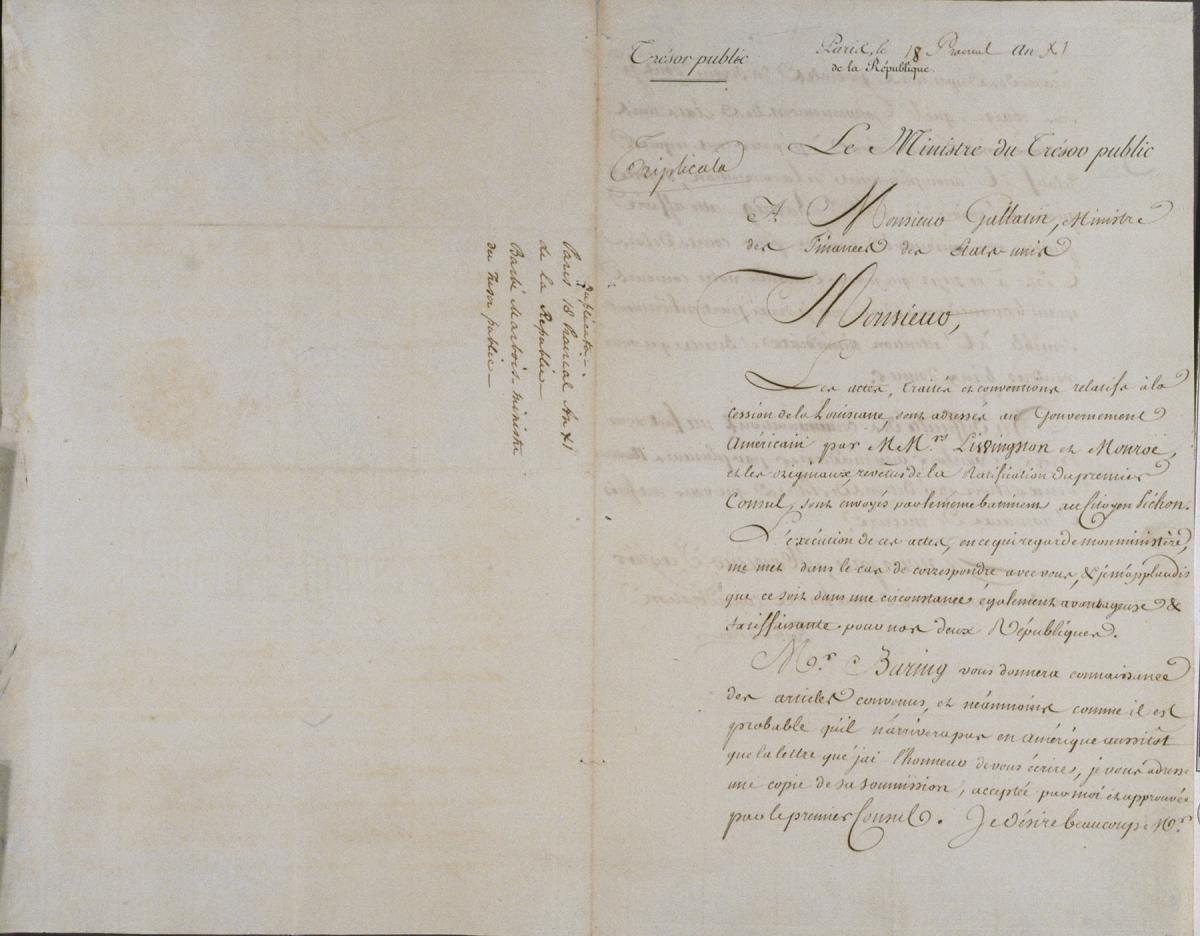 Duplicata
Paris 18 Prairial An XI
de la République
Barbé Marbois ministre
du Tresor public
Trésor public
Paris, le 18 Prairial an XI
de la République
Triplicata
Le Ministre du Trésor public
A Monsieur Gallatin, Ministre
des Finances des Etats-unis
Monsieur,
Les actes, traités et conventions relatifs à la
cession de la Louisiane, sont adressés au Gouvernement
Américain par M.Mrs Livingston et Monroe,
et les originaux, revêtus de la Ratification du premier
Consul, sont envoyés par le même batiment au Citoyen Pichon.
L'exécution de ces actes, en ce qui regarde mon ministère,
me met dans le cas de correspondre avec vous, & je m'applaudis
que ce soit dans une circonstance également avantageuse &
satisfaisante pour nos deux Républiques.
Mr. Baring vous donnera connaissance
des articles convenus, et néanmoins comme il est
probable qu'il n'arrivera pas en Amérique aussitôt
que la lettre que j'ai l'honneur de vous écrire, je vous adresse
une copie de sa soumission, acceptée par moi et approuvée
par le premier Consul. Je désire beaucoup Mr.